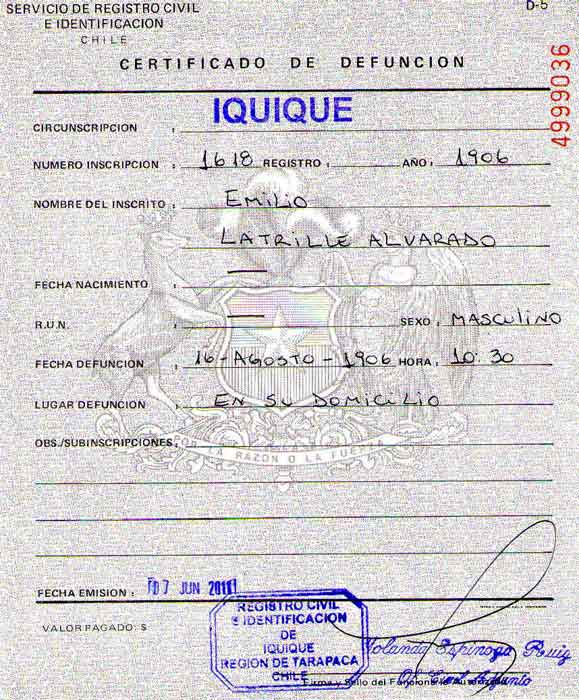 SERVICIO DE REGISTRO CIVIL
E IDENTIFICACION
CHILE
D-5
CERTIFICADO DE DEFUNCION
4999036
CIRCUNSCRIPCION : IQUIQUE
NUMERO INSCRIPCION : 1618 REGISTRO : AÑO : 1906
NOMBRE DEL INSCRITO : EMILIO
LATRILLE ALVARADO
FECHA NACIMIENTO : —
R.U.N. : — SEXO : MASCULINO
FECHA DEFUNCION : 16-AGOSTO-1906 HORA : 10.30
LUGAR DEFUNCION : EN SU DOMICILIO
OBS./SUBINSCRIPCIONES :
POR LA RAZON O LA FUERZA
FECHA EMISION : 07 JUN 2011
VALOR PAGADO : $
REGISTRO CIVIL
E IDENTIFICACION
DE
IQUIQUE
REGION DE TARAPACA
CHILE
Yolanda Espinoza Ruiz
Of. Civil Adjunto
Firma y Sello del Funcionario